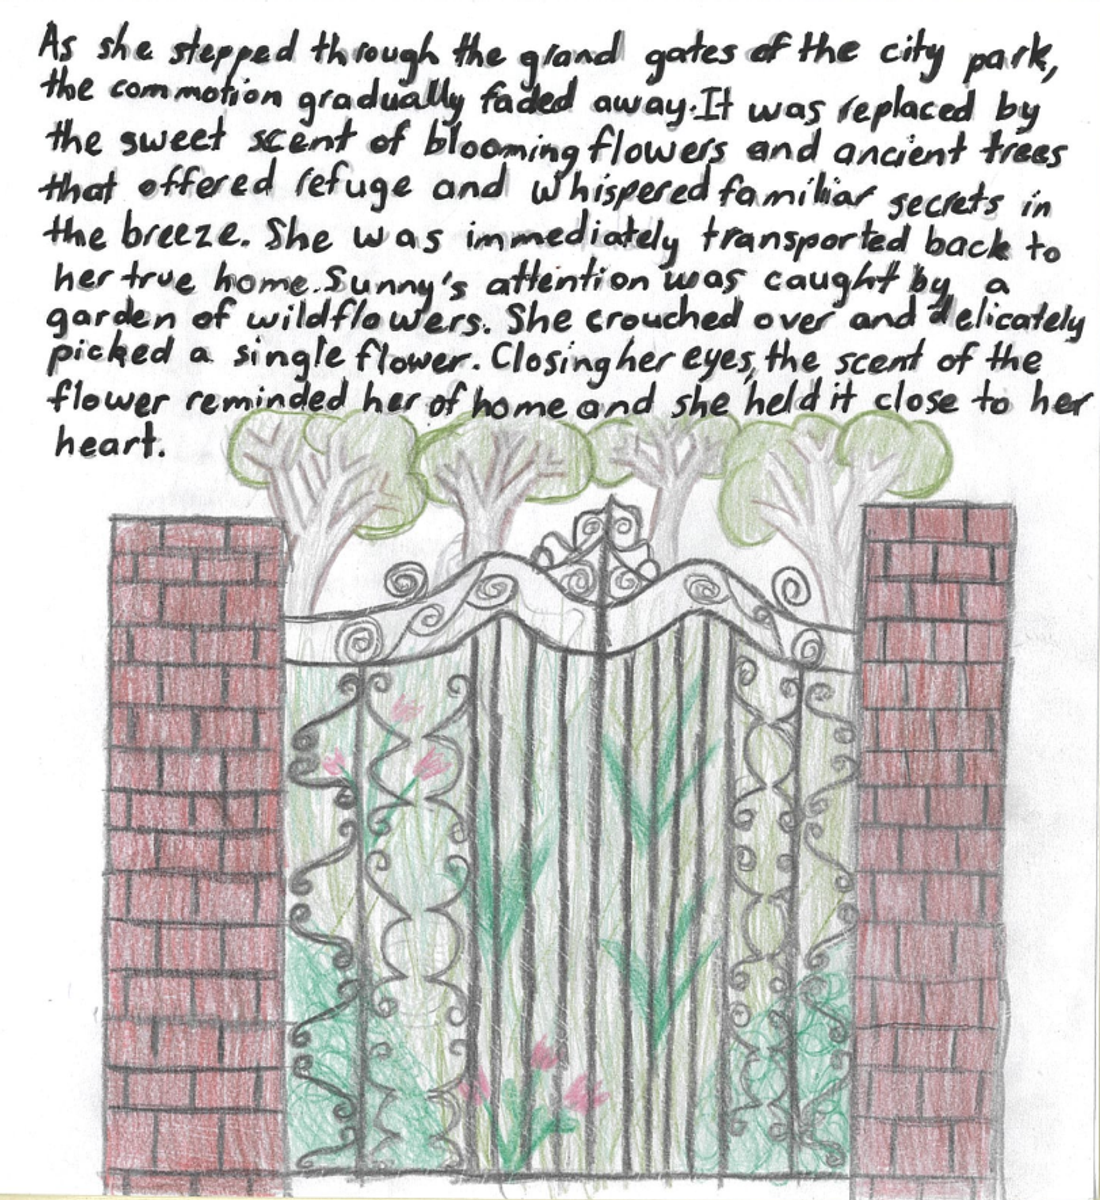 As she stepped through the grand gates of the city park,
the commotion gradually faded away. It was replaced by
the sweet scent of blooming flowers and ancient trees
that offered refuge and whispered familiar secrets in
the breeze. She was immediately transported back to
her true home. Sunny's attention was caught by a
garden of wildflowers. She crouched over and delicately
picked a single flower. Closing her eyes, the scent of the
flower reminded her of home and she held it close to her
heart.